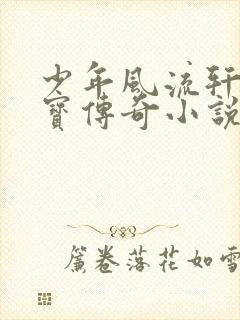 少年風流軒
寶傳奇小說
簾卷落花如雪